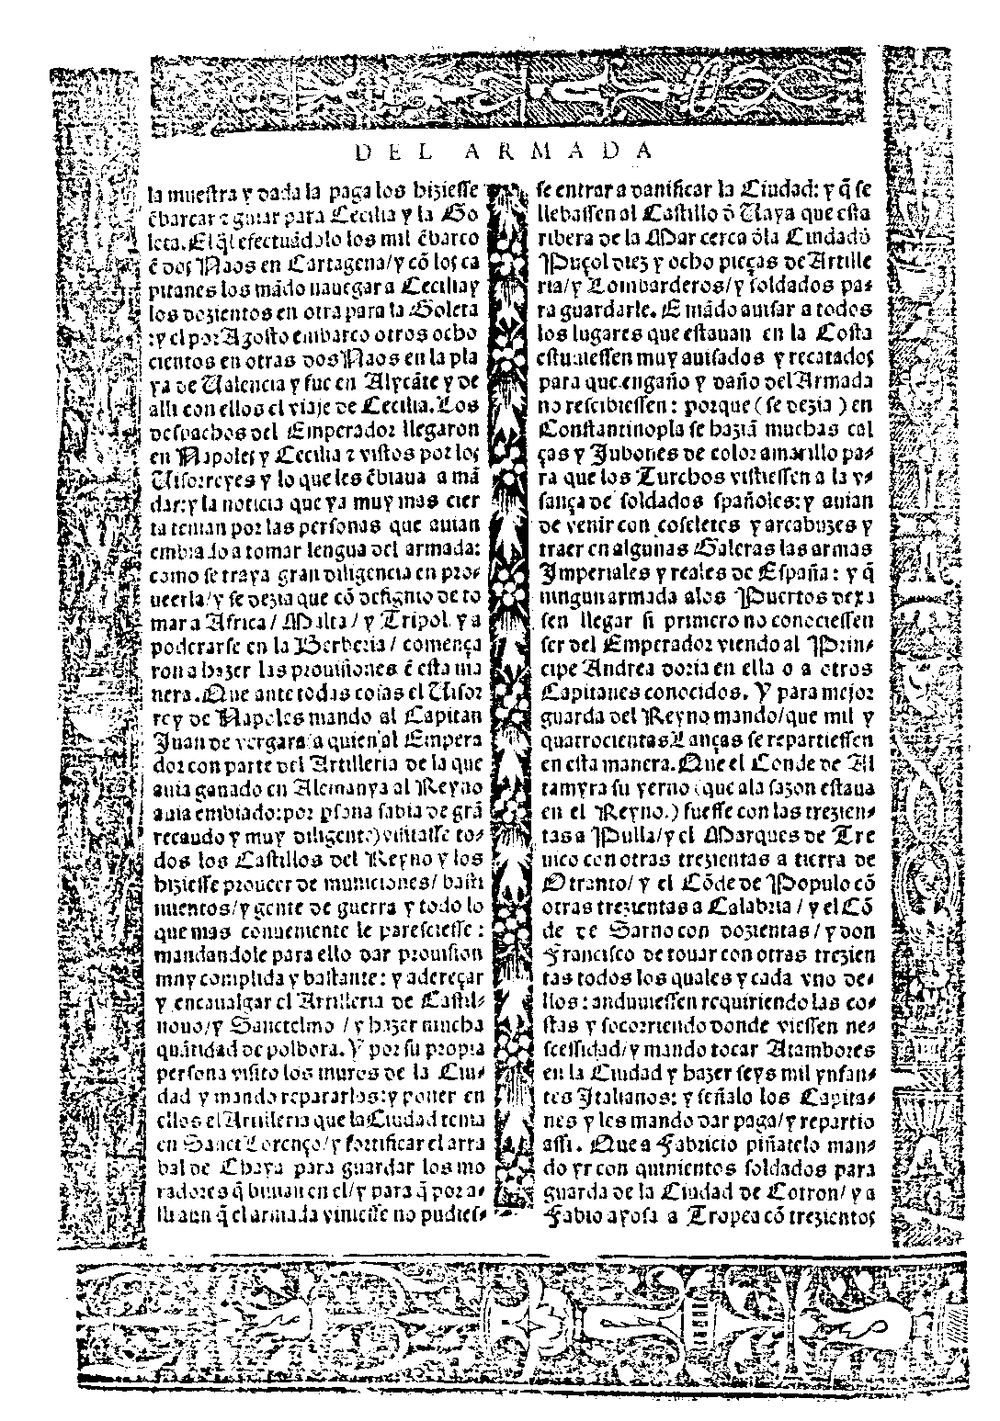 DEL ARMADA
la muestra y dada la paga los hiziesse
ẽbarcar ⁊ guiar para Cecilia y la Go
leta. El q̃l efectuãdolo los mil ẽbarco
ẽ dos Naos en Cartagena/y cõ los ca
pitanes los mãdo nauegar a Cecilia y
los dozientos en otra para la Goleta
:y el por Agosto embarco otros ocho
cientos en otras dos Naos en la pla
ya de Ualencia y fue en Alycãte y de
alli con ellos el viaje de Cecilia. Los
despachos del Emperador llegaron
en Napoles y Cecilia ⁊ vistos por los
Uisorreyes y lo que les ẽbiaua a mã
dar:y la noticia que ya muy mas cier
ta tenian por las personas que auian
embiado a tomar lengua del armada:
como se traya gran diligencia en pro⸗
ueerla/y se dezia que cõ designio de to
mar a Africa/ Malta/ y Tripol y a
poderarse en la Berberia/ comença
ron a hazer las prouisiones ẽ esta ma
nera. Que ante todas cosas el Uisor
rey de Napoles mando al Capitan
Juan de vergara/a quien al Empera
dor con parte del Artilleria de la que
auia ganado en Alemanya al Reyno
auia embiado:por psona sabia de grã
recaudo y muy diligente)visitasse to⸗
dos los Castillos del Reyno y los
hiziesse proueer de municiones/ basti
mientos/y gente de guerra y todo lo
que mas conueniente le paresciesse :
mandandole para ello dar prouision
muy complida y bastante: y adereçar
y encaualgar el Artilleria de Castil⸗
nouo/y Sanctelmo /y hazer mucha
quãtidad de polbora. Y por su propia
persona visito los muros de la Ciu⸗
dad y mando repararlos:y poner en
ellos el Artilleria que la Ciudad tenia
en Sanct Lorenço/y fortificar el arra
bal de Chaya para guardar los mo
radores q̃ biuian en el/y para q̃ por a⸗
lli aun q̃ el armada viniesse no pudies⸗
se entrar a danificar la Ciudad: y q̃ se
llebassen al Castillo õ Uaya que esta
ribera de la Mar cerca õla Ciudad õ
Puçol diez y ocho pieças de Artille
ria/y Lombarderos/y soldados pa⸗
ra guardarle. E mãdo auisar a todos
los lugares que estauan en la Costa
estuuiessen muy auisados y recatados
para que engaño y daño del Armada
no rescibiessen: porque (se dezia) en
Constantinopla se haziã muchas cal
ças y Jubones de color amarillo pa⸗
ra que los Turchos vistiessen a la v⸗
sança de soldados spañoles:y auian
de venir con coseletes y arcabuzes y
traer en algunas Galeras las armas
Imperiales y reales de España: y q̃
ningun armada alos Puertos dexa
sen llegar si primero no conociessen
ser del Emperador viendo al Prin⸗
cipe Andrea doria en ella o a otros
Capitanes conocidos. Y para mejor
guarda del Reyno mando/que mil y
quatrocientas Lanças se repartiessen
en esta manera. Que el Conde de Al
tamyra su yerno (que ala sazon estaua
en el Reyno.) fuesse con las trezien⸗
tas a Pulla/y el Marques de Tre
uico con otras trezientas a tierra de
Otranto/ y el Cõde de Populo cõ
otras trezientas a Calabria/ y el Cõ
de de Sarno con dozientas/ y don
Francisco de touar con otras trezien
tas todos los quales y cada vno de⸗
llos: anduuiessen requiriendo las co⸗
stas y socorriendo donde viessen ne⸗
scessidad/y mando tocar Atambores
en la Ciudad y hazer seys mil ynfan⸗
tes Italianos: y señalo los Capita⸗
nes y les mando dar paga/y repartio
assi. Que a Fabricio piñatelo man⸗
do yr con quinientos soldados para
guarda de la Ciudad de Cotron/ y a
Fabio ayosa a Tropea cõ trezientos